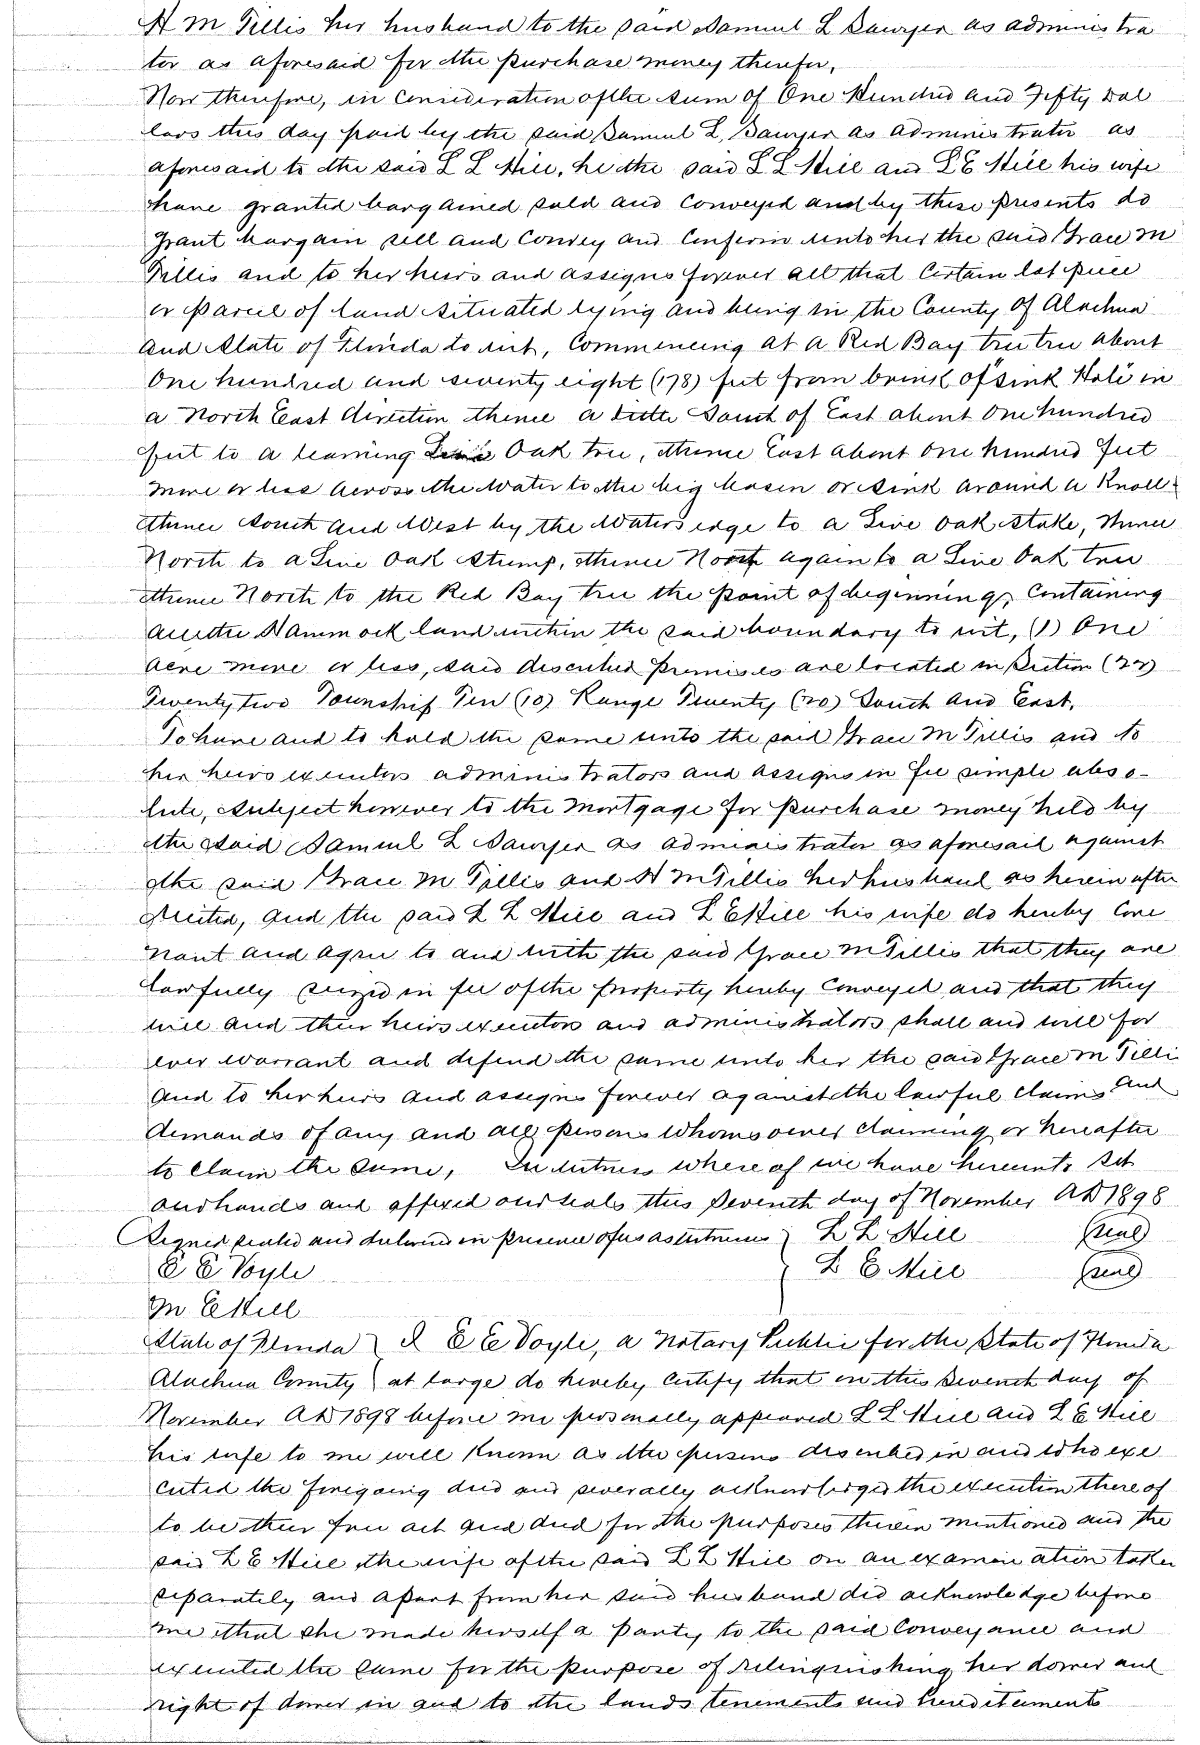 H M Tillis her husband to the said Samuel L Sawyer as administra
tor as aforesaid for the purchase money therefor,
Now therefore, in consideration of the sum of One Hundred and Fifty Dol
lars this day paid by the said Samuel L, Sawyer as administrator as
aforesaid to the said L L Hill, he the said L L Hill and L E Hill his wife
have granted bargained sold and conveyed and by these presents do
grant bargain sell and convey and confirm unto her the said Grace M
Tillis and to her heirs and assigns forever all that certain lot piece
or parcel of land situated lying and being in the County of Alachua
and State of Florida to wit, Commencing at a Red Bay tree tree about
One hundred and seventy eight (178) feet from brink of Sink Hole in
a North East direction thence a little South of East about one hundred
feet to a leaning Live Oak tree, thence East about one hundred feet
more or less across the water to the big basin or sink around a Knoll
thence South and West by the waters edge to a Live oak stake, thence
North to a Live Oak stump, thence North again to a Live Oak tree
thence North to the Red Bay tree the point of beginning, Containing
all the Hammock land within the said boundary to wit, (1) One
acre more or less, said described premises are located in Section (22)
Twenty two Township Ten (10) Range Twenty (20) South and East.
To have and to hold the same unto the said Grace M Tillis and to
her heirs executors administrators and assigns in fee simple abso-
lute, subject however to the mortgage for purchase money held by
the said Samuel L Sawyer as administrator as aforesaid against
the said Grace M Tillis and H M Tillis her husband as herein after
recited, and the said L L Hill and L E Hill his wife do hereby Cove
nant and agree to and with the said Grace M Tillis that they are
lawfully seized in fee of the property hereby conveyed and that they
will and their heirs executors and administrators shall and will for
ever warrant and defend the same unto her the said Grace M Tilli
and to her heirs and assigns forever against the lawful claims and
demands of any and all persons whomsoever claiming or hereafter
to claim the same, In witness where of we have hereunto set
our hands and affixed our seals this Seventh day of November AD 1898
Signed sealed and delivered in presence of us as witnesses } L L Hill (seal)
E E Voyle } L E Hill (seal)
M E Hill
State of Florida } I E E Voyle, a Notary Public for the State of Florida
Alachua County } at large do hereby certify that on this Seventh day of
November AD 1898 before me personally appeared L L Hill and L E Hill
his wife to me well known as the persons described in and who exe
cuted the foregoing deed and severally acknowledged the execution there of
to be their free act and deed for the purposes therein mentioned and the
said L E Hill the wife of the said L L Hill on an examination taken
separately and apart from her said husband did acknowledge before
me that she made herself a party to the said conveyance and
executed the same for the purpose of relinquishing her dower and
right of dower in and to the lands tenements and hereditaments